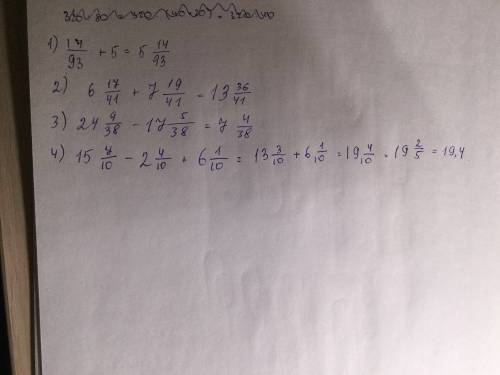 1) 14/93 + 5 = 5 14/93
2) 6 17/41 + 7 19/41 - 13 36/41
3) 24 9/38 - 17 5/38 = 7 4/38
4) 15 7/10 - 2 4/10 + 6 1/10 = 13 3/10 + 6 1/10 = 19 4/10 = 19 2/5 = 19,4